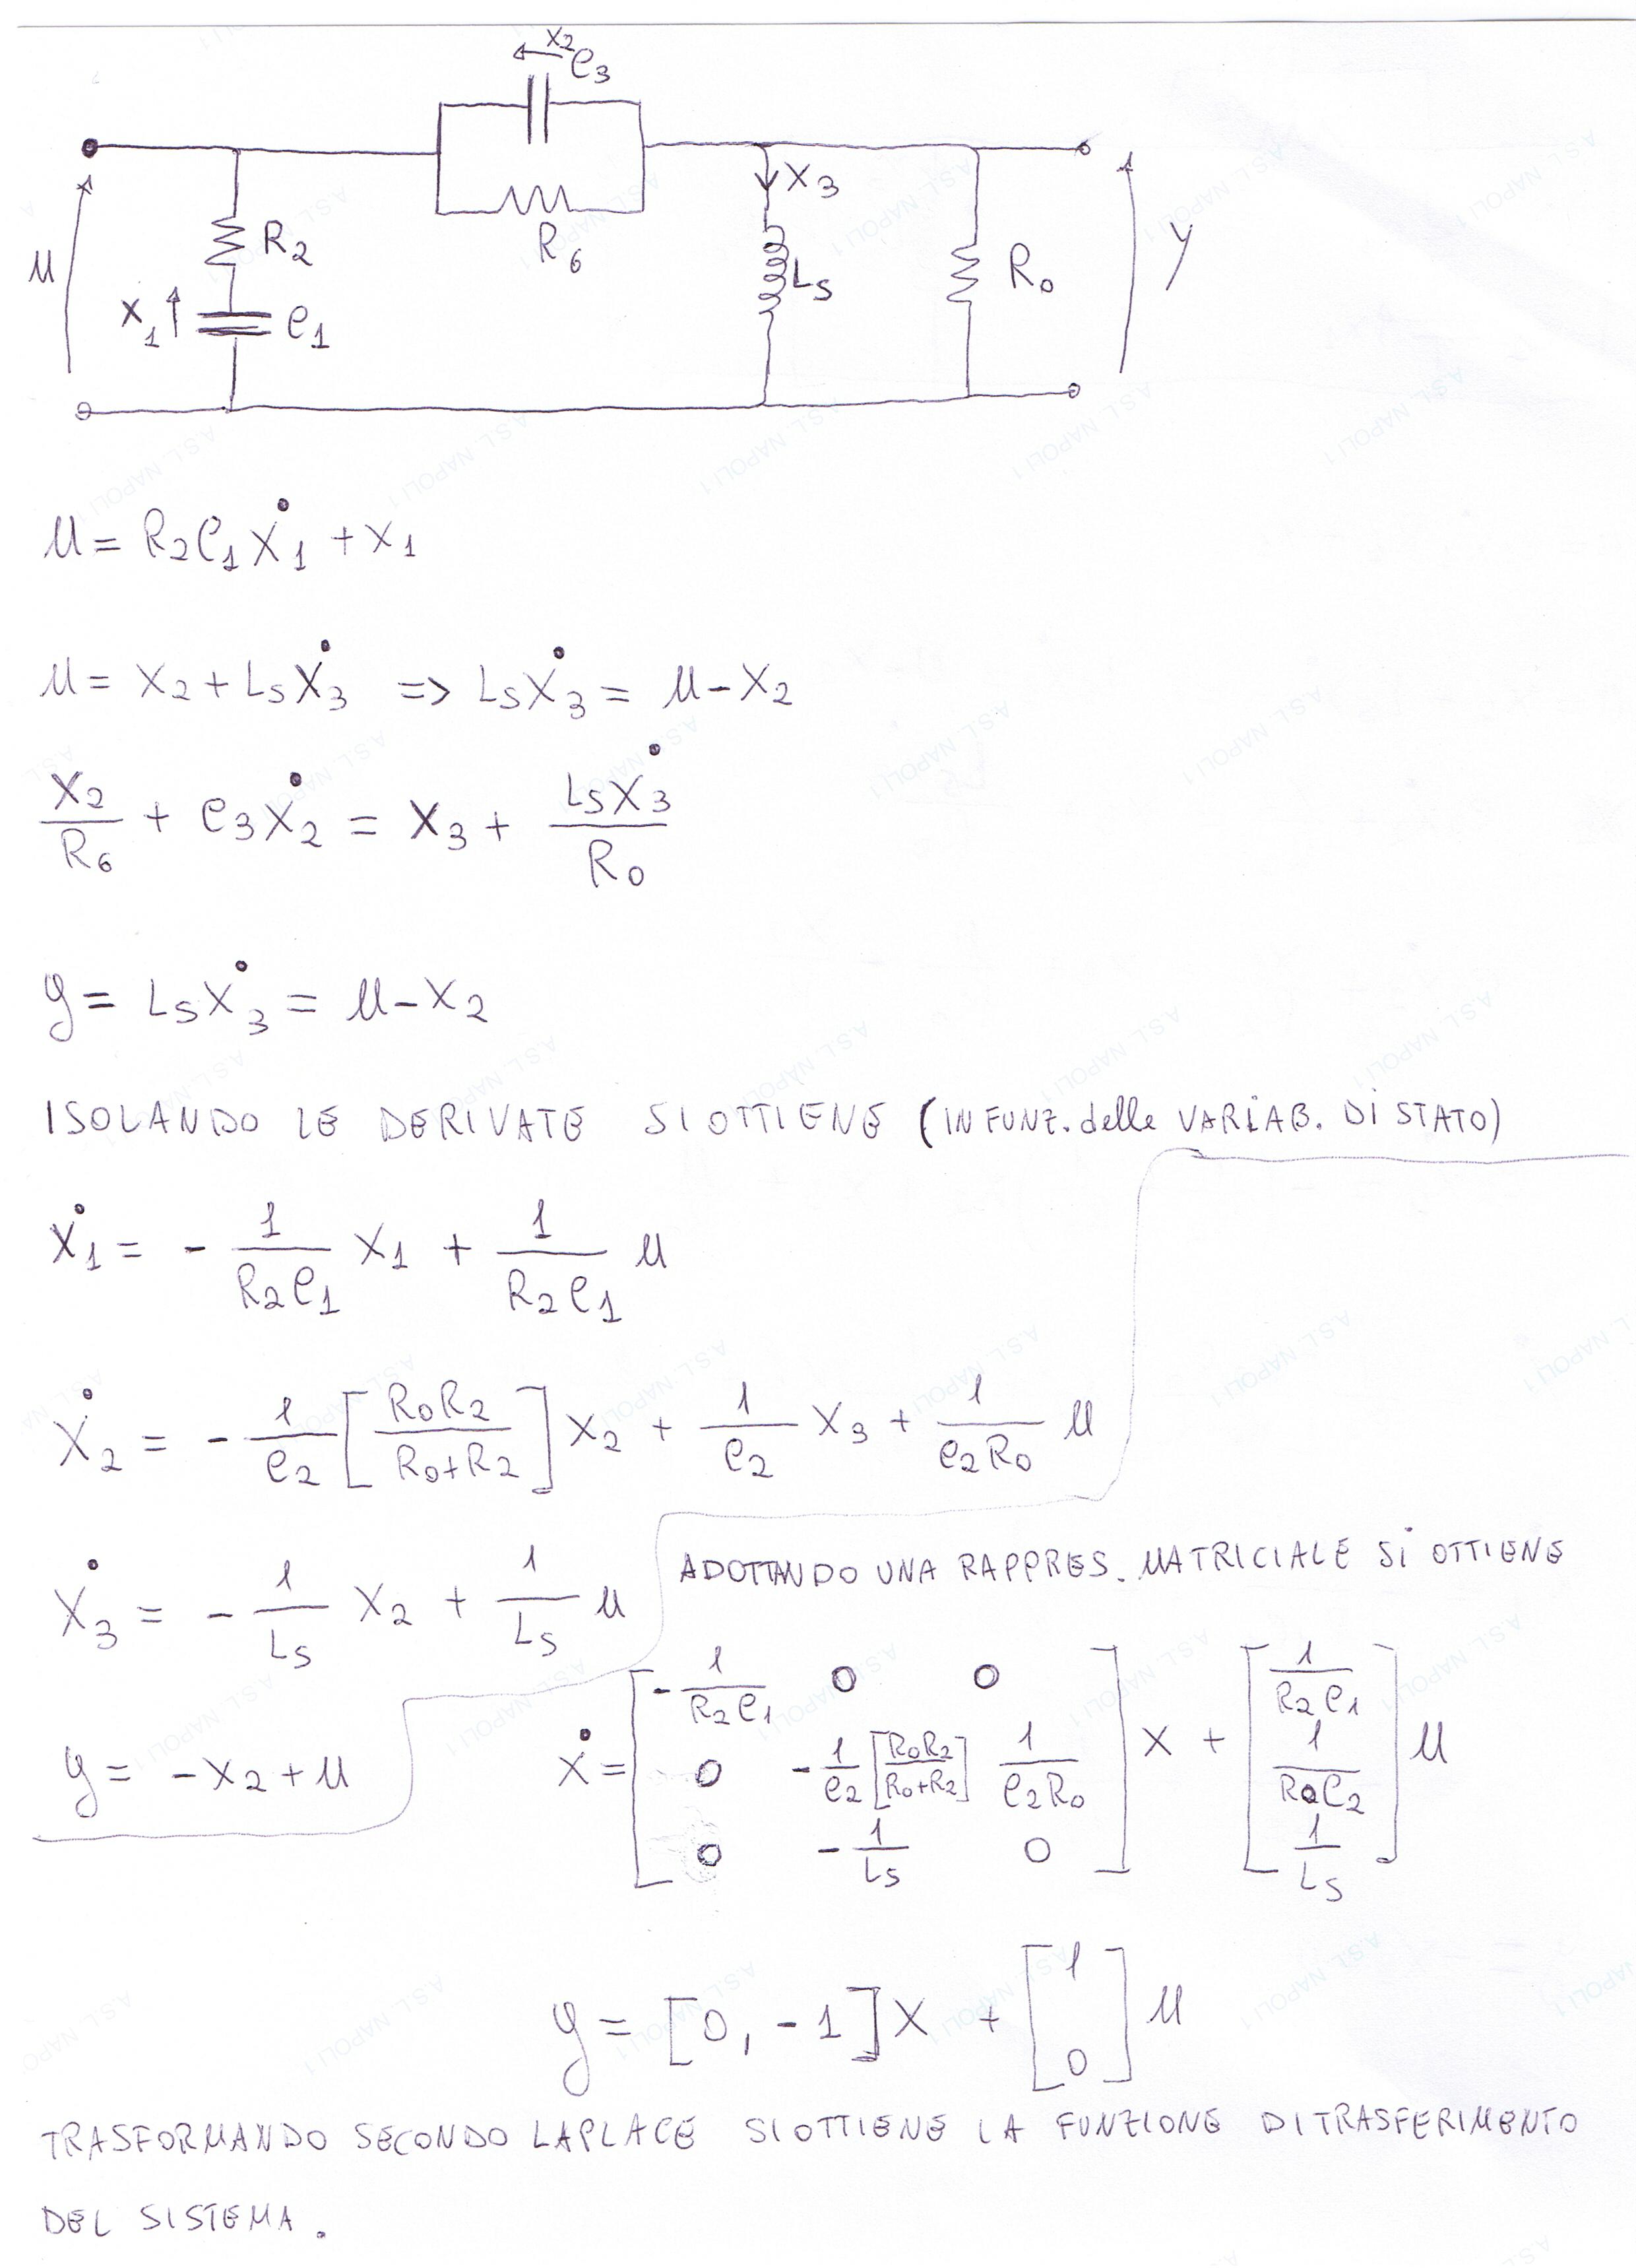 x2
C3
R6
x3
R2
u
x1
C1
L5
R0
y
u = R2C1ẋ1 + x1
u = x2 + L5ẋ3 => L5ẋ3 = u - x2
x2/R6 + C3ẋ2 = x3 + L5ẋ3/R0
y = L5ẋ3 = u - x2
ISOLANDO LE DERIVATE SI OTTIENE (IN FUNZ. delle VARIAB. DI STATO)
ẋ1 = - 1/(R2C1) x1 + 1/(R2C1) u
ẋ2 = - 1/C2 [R0R2/(R0+R2)] x2 + 1/C2 x3 + 1/(C2R0) u
ẋ3 = - 1/L5 x2 + 1/L5 u
y = -x2 + u
ADOTTANDO UNA RAPPRES. MATRICIALE SI OTTIENE
ẋ = [ -1/(R2C1) 0 0 ; 0 -1/C2 [R0R2/(R0+R2)] 1/(C2R0) ; 0 -1/L5 0 ] x + [ 1/(R2C1) ; 1/(R0C2) ; 1/L5 ] u
y = [0, -1] x + [ 1 ; 0 ] u
TRASFORMANDO SECONDO LAPLACE SI OTTIENE LA FUNZIONE DI TRASFERIMENTO
DEL SISTEMA.
A.S.L. NAPOLI 1